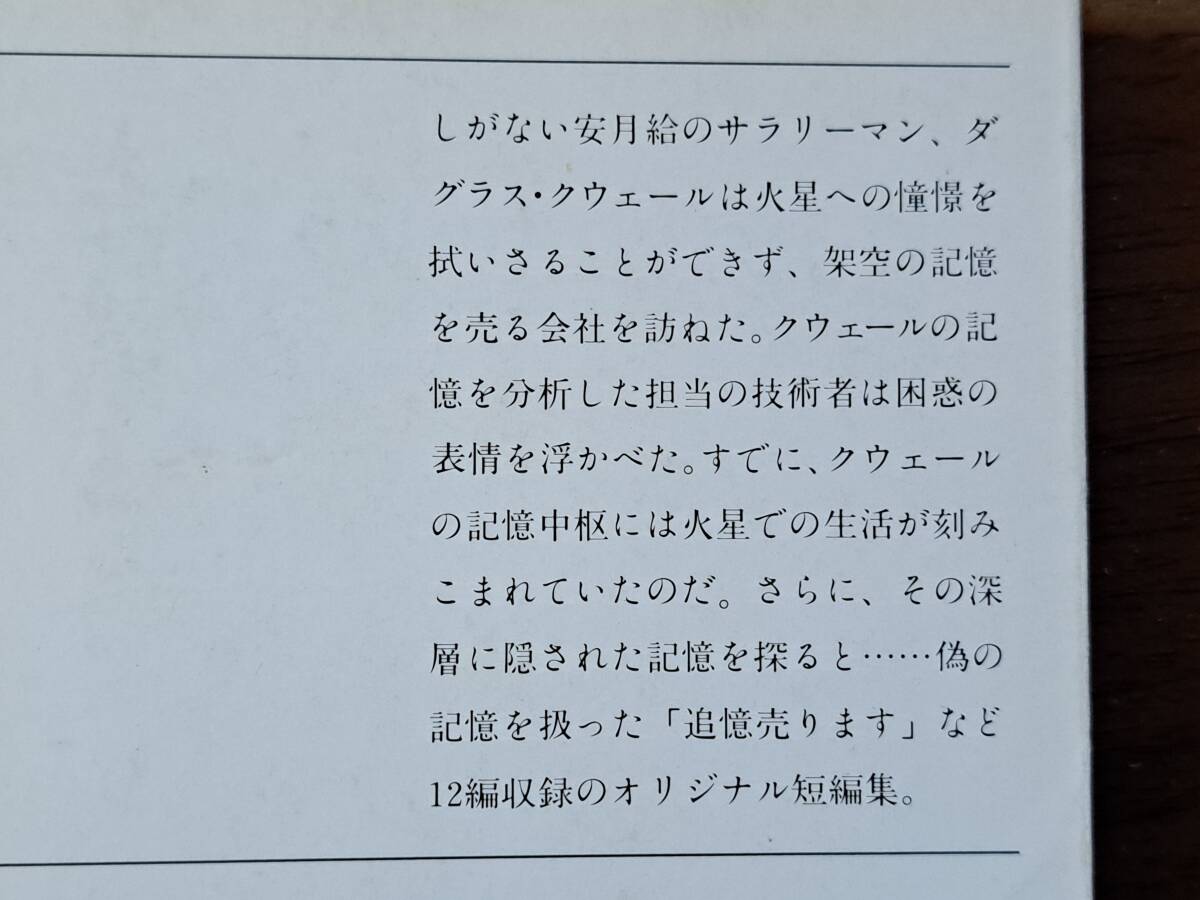 しがない安月給のサラリーマン、ダ
グラス・クウェールは火星への憧憬を
拭いさることができず、架空の記憶
を売る会社を訪ねた。クウェールの記
憶を分析した担当の技術者は困惑の
表情を浮かべた。すでに、クウェール
の記憶中枢には火星での生活が刻み
こまれていたのだ。さらに、その深
層に隠された記憶を探ると……偽の
記憶を扱った「追憶売ります」など
12編収録のオリジナル短編集。